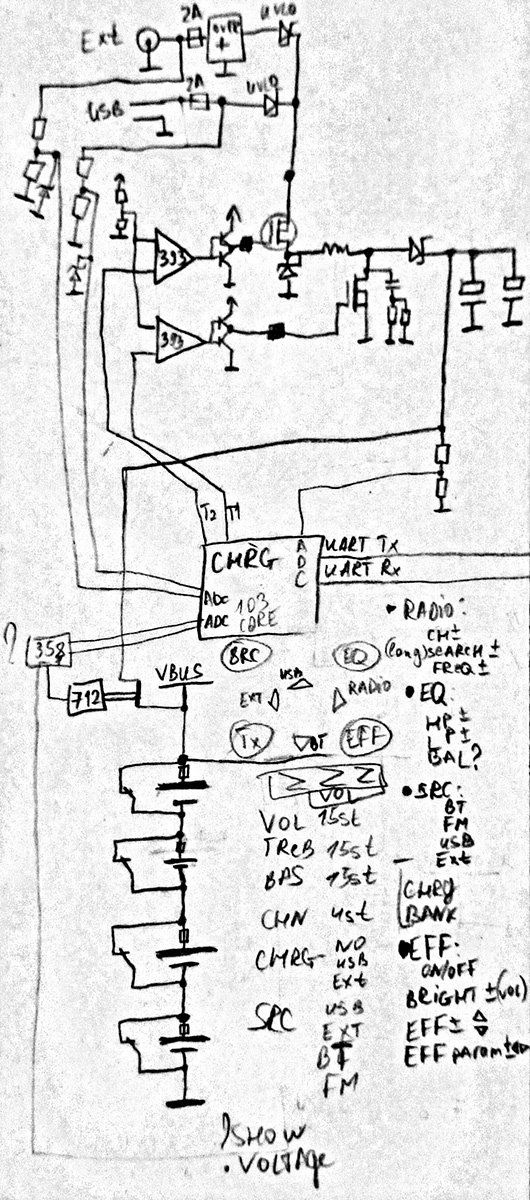 2A
UVLO
Ext
OVPR
+
2A
UVLO
USB
393
393
T2
T1
CHRG
A
D
C
UART Tx
UART Rx
ADC
ADC
103
CORE
?
358
712
VBUS
SRC
EQ
USB
EXT
RADIO
Tx
BT
EFF
VOL
VOL 15st
TREB 15st
BAS 15st
CHN 4st
CHRG NO
USB
Ext
SRC USB
EXT
BT
FM
RADIO:
CH±
(long) SEARCH ±
FREQ ±
• EQ:
HP ±
LP ±
BAL?
• SRC:
BT
FM
USB
Ext
CHRG
BANK
• EFF:
ON/OFF
BRIGHT ± (VOL)
EFF±
EFF param ±
SHOW
. VOLTAGE